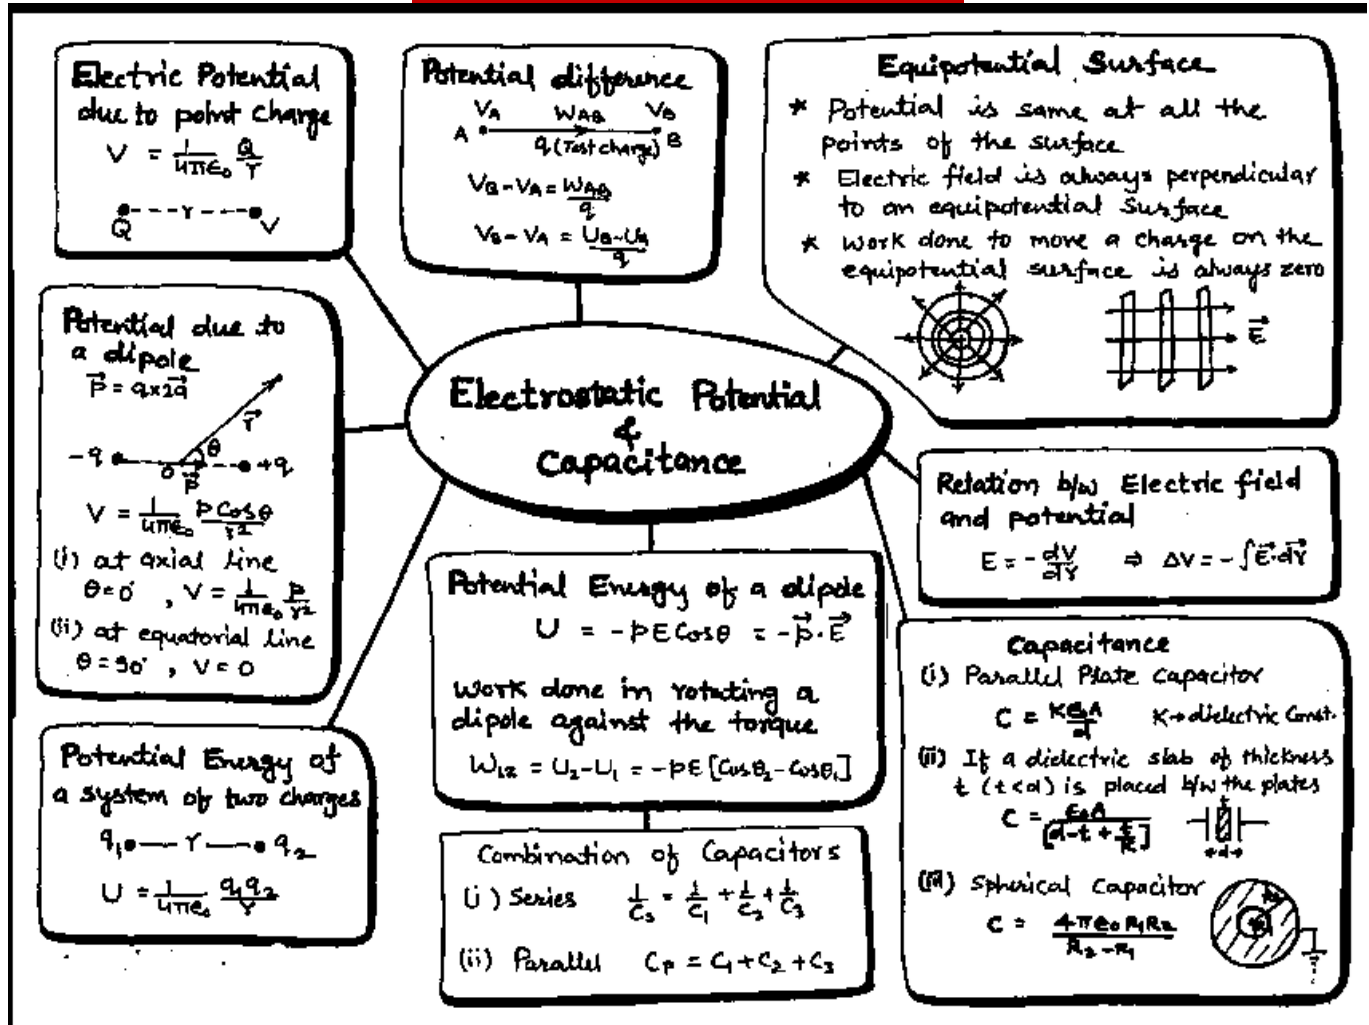 Electric Potential
due to point charge
V = 1/4πε₀ Q/r
Q r V
Potential difference
V_A W_AB V_B
A q (Test charge) B
V_B - V_A = W_AB/q
V_B - V_A = U_B - U_A/q
Equipotential Surface
* Potential is same at all the
points of the surface
* Electric field is always perpendicular
to an equipotential surface
* Work done to move a charge on the
equipotential surface is always zero
E⃗
Potential due to
a dipole
p⃗ = q×2a⃗
r⃗
θ
-q O p⃗ +q
V = 1/4πε₀ p Cosθ/r²
(i) at axial line
θ = 0°, V = 1/4πε₀ p/r²
(ii) at equatorial line
θ = 90°, V = 0
Electrostatic Potential
&
Capacitance
Relation b/w Electric field
and potential
E = -dV/dr ⇒ ΔV = -∫E⃗·dr⃗
Potential Energy of a dipole
U = -pE Cosθ = -p⃗·E⃗
Work done in rotating a
dipole against the torque
W₁₂ = U₂ - U₁ = -pE [Cosθ₂ - Cosθ₁]
Potential Energy of
a system of two charges
q₁ r q₂
U = 1/4πε₀ q₁q₂/r
Combination of Capacitors
(i) Series 1/Cs = 1/C₁ + 1/C₂ + 1/C₃
(ii) Parallel Cp = C₁ + C₂ + C₃
Capacitance
(i) Parallel Plate Capacitor
C = Kε₀A/d K→dielectric Const.
(ii) If a dielectric slab of thickness
t (t<d) is placed b/w the plates
C = ε₀A/[d-t+t/K]
t
d
(iii) Spherical Capacitor
C = 4πε₀R₁R₂/R₂-R₁
R₂
R₁